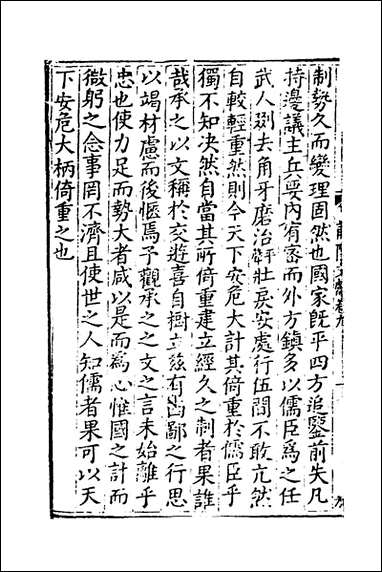 制勢久而變理固然也國家既平四方追鑒前失凡
持邊議主兵要內有密而外方鎮多以儒臣爲之任
武人剟去角牙磨治壯戾安處行伍間不敢亢然
自較輕重然則今天下安危大計其倚重於儒臣乎
獨不知決然自當其所倚重建立經久之制者果誰
哉承之以文稱於交遊喜自樹立茲有鄙之行思
以竭材慮而後愜焉予觀承之之文之言未始離乎
忠也使力足而勢大者咸以是而爲心惟國之計而
微躬之念事罔不濟且使世之人知儒者果可以天
下安危大柄倚重之也